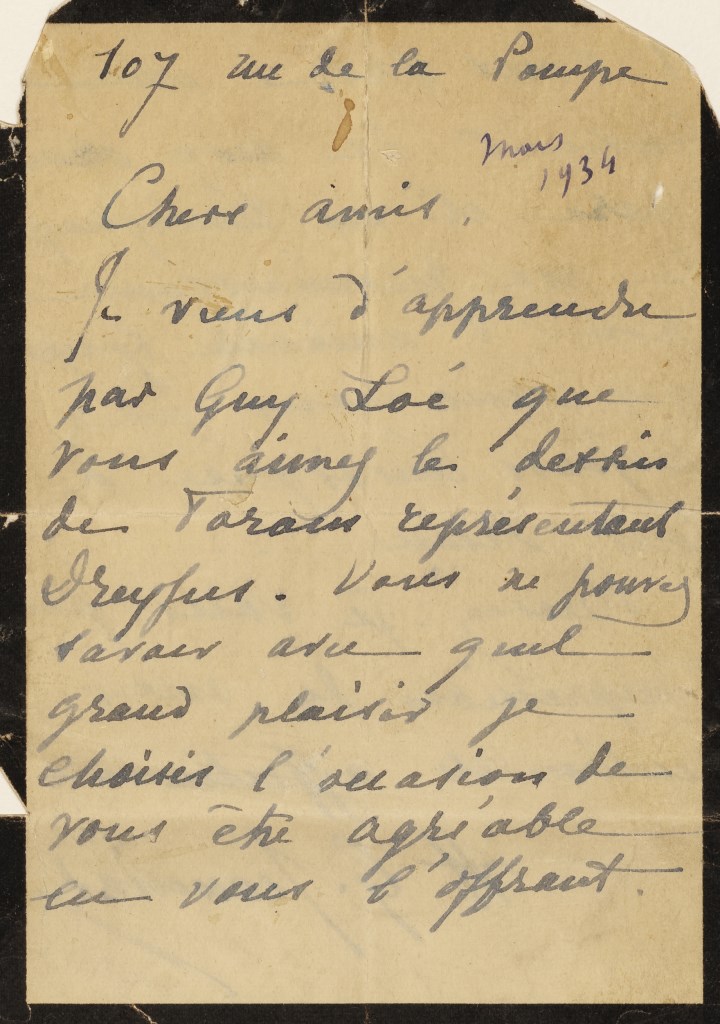 107 rue de la Pompe
Mars
1934
Chers amis,
Je viens d'apprendre
par Guy Loé que
vous aimez le dessin
de Forain représentant
Dreyfus. Vous ne pouvez
savoir avec quel
grand plaisir je
choisis l'occasion de
vous être agréable
en vous l'offrant.